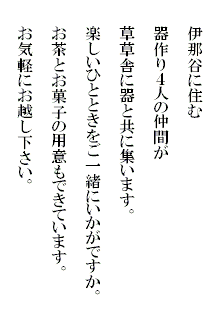 伊那谷に住む
器作り４人の仲間が
草草舎に器と共に集います。
楽しいひとときをご一緒にいかがですか。
お茶とお菓子の用意もできています。
お気軽にお越し下さい。